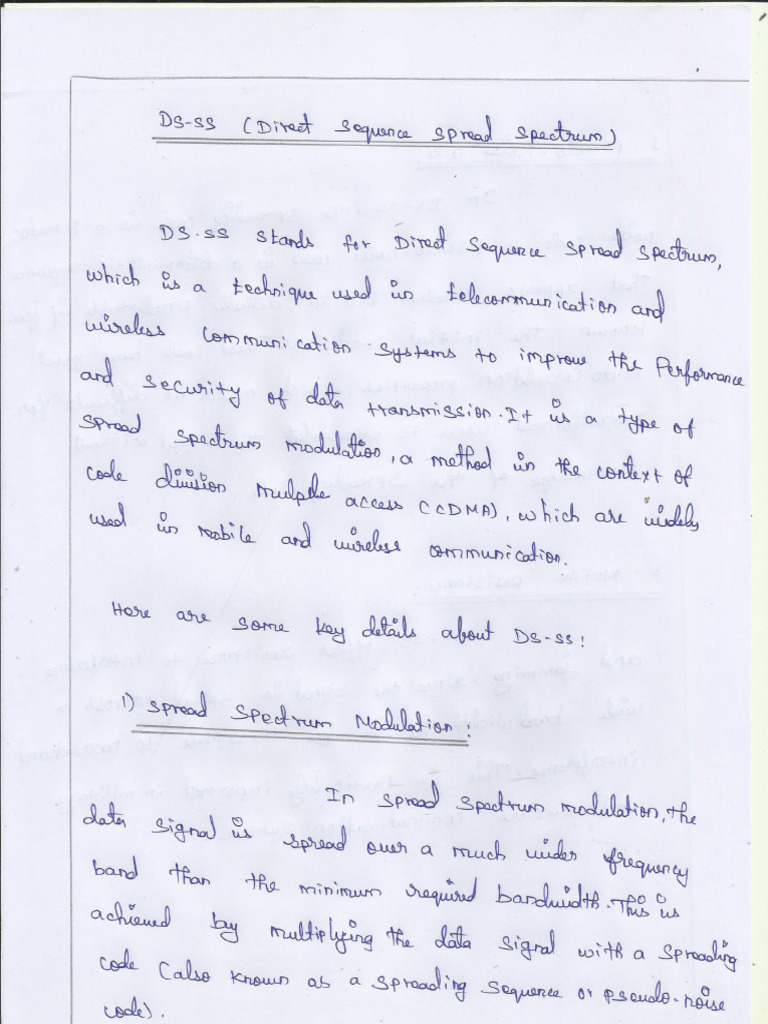 DS-SS (Direct Sequence Spread Spectrum)
DS-SS stands for Direct Sequence Spread Spectrum,
which is a technique used in telecommunication and
wireless communication systems to improve the Performance
and security of data transmission. It is a type of
spread spectrum modulation, a method in the context of
code division mulple access (CDMA), which are widely
used in mobile and wireless communication.
Here are some key details about DS-SS:
1) Spread Spectrum Modulation:
In spread spectrum modulation, the
data signal is spread over a much wider frequency
band than the minimum required bandwidth. This is
achieved by multiplying the data signal with a spreading
code (also known as a spreading sequence or pseudo-noise
code).